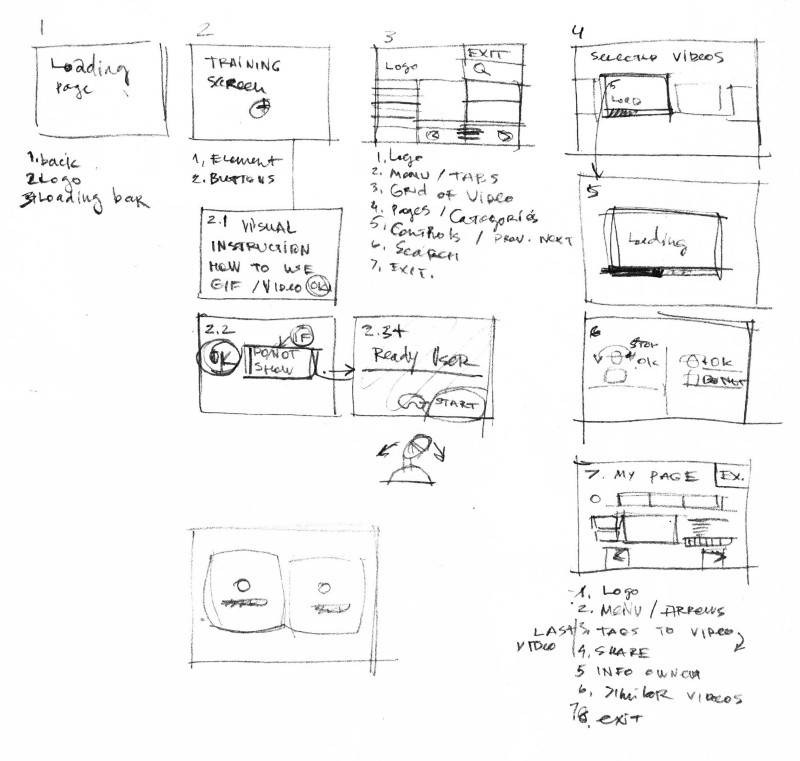 1
Loading
page
1. back
2. Logo
3. Loading bar
2
TRAINING
SCREEN
1. Element
2. BUTTONS
2.1 VISUAL
INSTRUCTION
HOW TO USE
GIF / Video OK
2.2
IF
OK
DO NOT
SHOW
2.3+
Ready USER
START
3
Logo
EXIT
1. Logo
2. MENU / TABS
3. Grid of Video
4. Pages / Categories
5. Controls / PREV. NEXT
6. SEARCH
7. EXIT.
4
Selected Videos
5
LOAD
5
Loading
6
STOP
OK
OK
7. MY PAGE
EX.
1. Logo
2. MENU / ARROWS
LAST
VIDEO
3. TAGS TO VIDEO
4. SHARE
5 INFO OWNER
6. Similar VIDEOS
8. exit